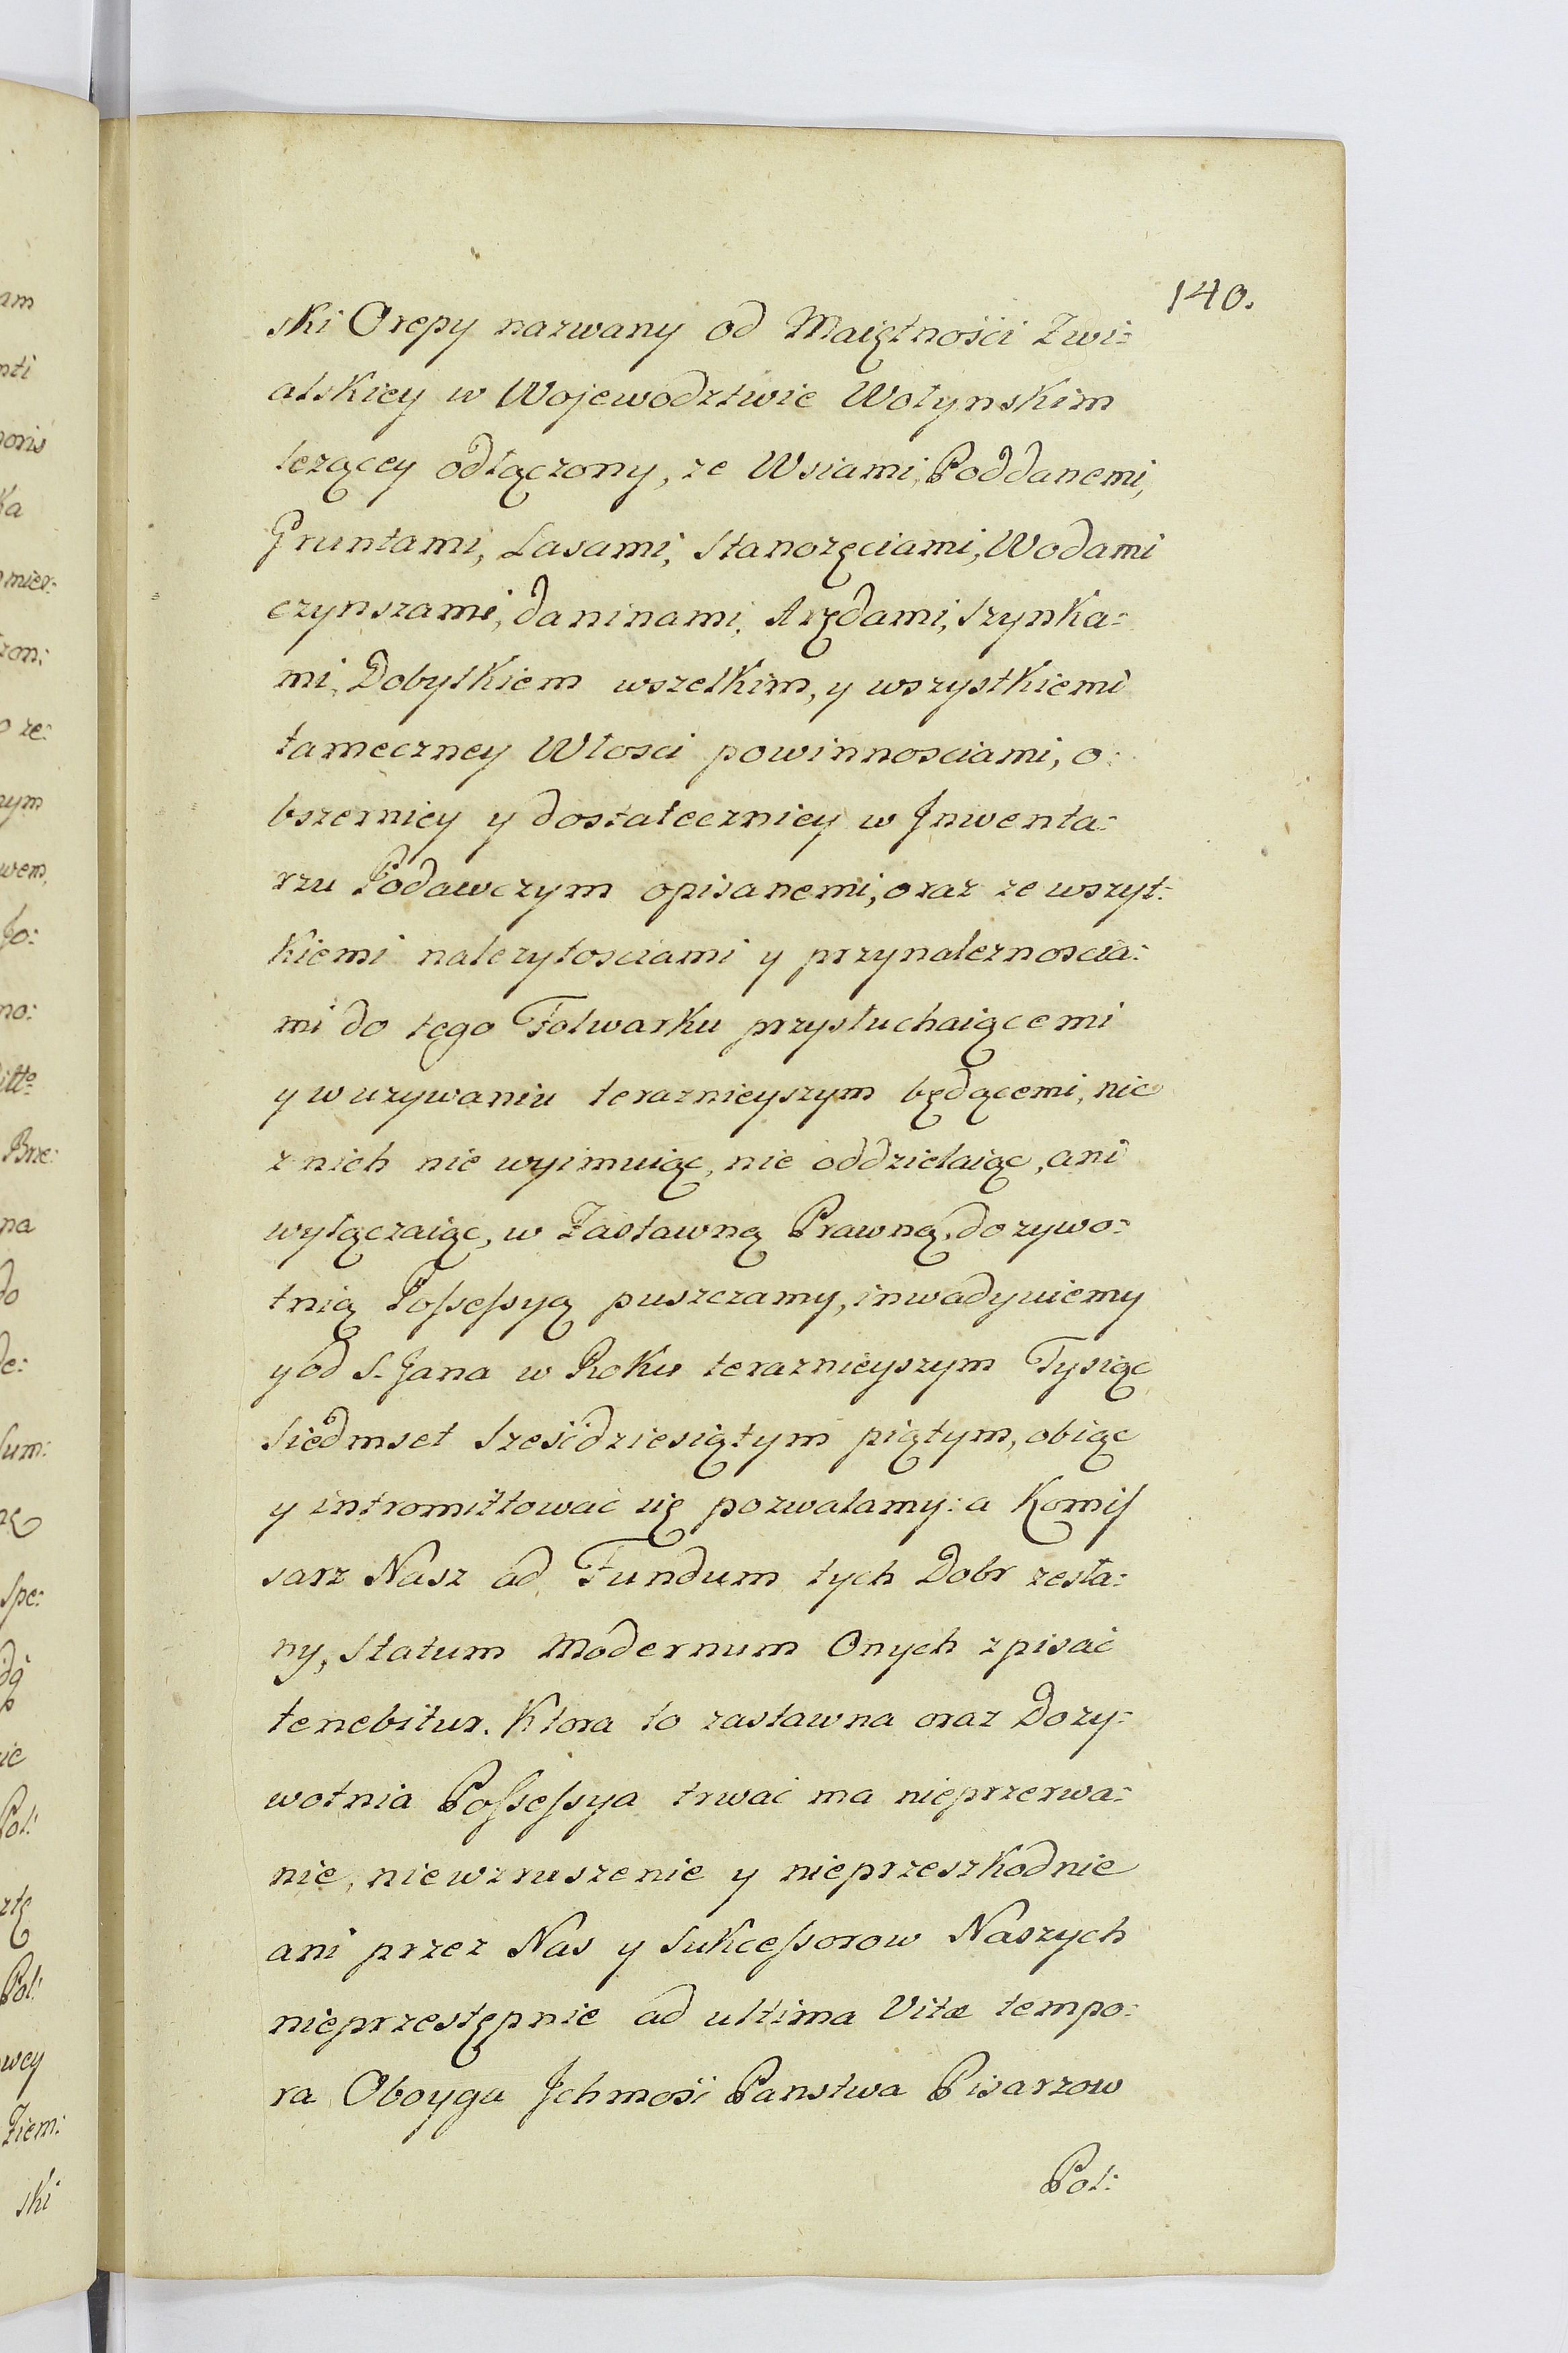 140.
ski Orepy nazwany od Maiętnośći Zwi:
alskiey w Wojewodztwie Wołynskim
leżącey odłączony, ze Wsiami, Poddanemi,
Gruntami, Lasami, Stanozęciami, Wodami
czynszami, daninami, Arędami, Szynka:
mi, Dobytkiem wszelkim, y wszystkiemi
tameczney Włosci powinnosciami, o:
bszerniey y dostateczniey w Jnwenta:
rzu Podawczym opisanemi, oraz ze wszyt:
kiemi nalezytosciami y przynaleznoscia:
mi do tego Folwarku przysłuchaiącemi
y w uzywaniu teraznieyszym będącemi, nic
z nich nie wyimuiąc, nie oddzielaiąc, ani
wyłączaiąc, w Zastawną Prawną, dozywo:
tnią Possessyą puszczamy, inwadyuiemy
y od S. Jana w Roku teraznieyszym Tysiąc
Siedmset Sześćdziesiątym piątym, obiąc
y intromittować się pozwalamy: a Komis
sarz Nasz ad Fundum tych Dobr zesła:
ny, Statum Modernum Onych zpisać
tenebitur. Ktora to zastawna oraz Dozy:
wotnia Possessya trwać ma nieprzerwa:
nie, niewzruszenie y nieprzeszkodnie
ani przez Nas y Sukcessorow Naszych
nieprzestępnie ad ultima Vitæ tempo:
ra Oboygu Jchmośći Panstwa Pisarzow
Pol:
am
nti
noris
ka
mier:
zon:
o ze:
nym
wem,
Jo:
no:
itto
Brze:
na
do
de:
Sum:
Spe:
nie
Pol:
Pol:
wey
Ziem:
ski